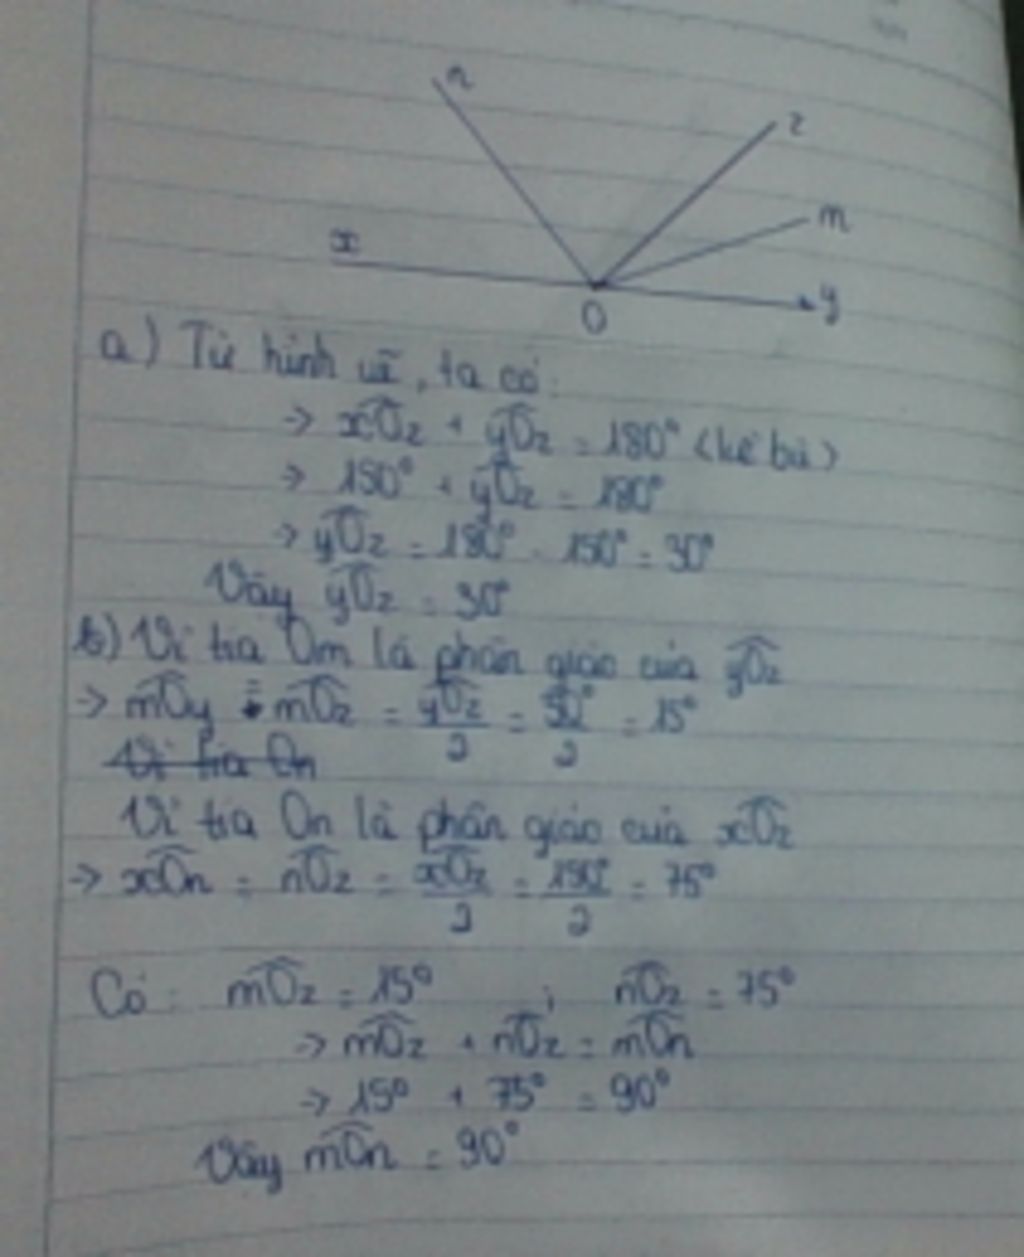 n
z
m
x
y
O
a) Từ hình vẽ, ta có:
→ xOz + yOz = 180° (kề bù)
→ 150° + yOz = 180°
→ yOz = 180° - 150° = 30°
Vậy yOz = 30°
b) Vì tia Om là phân giác của yOz
→ mOy = mOz = yOz/2 = 30°/2 = 15°
Vì tia On
Vì tia On là phân giác của xOz
→ xOn = nOz = xOz/2 = 150°/2 = 75°
Có: mOz = 15° ; nOz = 75°
→ mOz + nOz = mOn
→ 15° + 75° = 90°
Vậy mOn = 90°